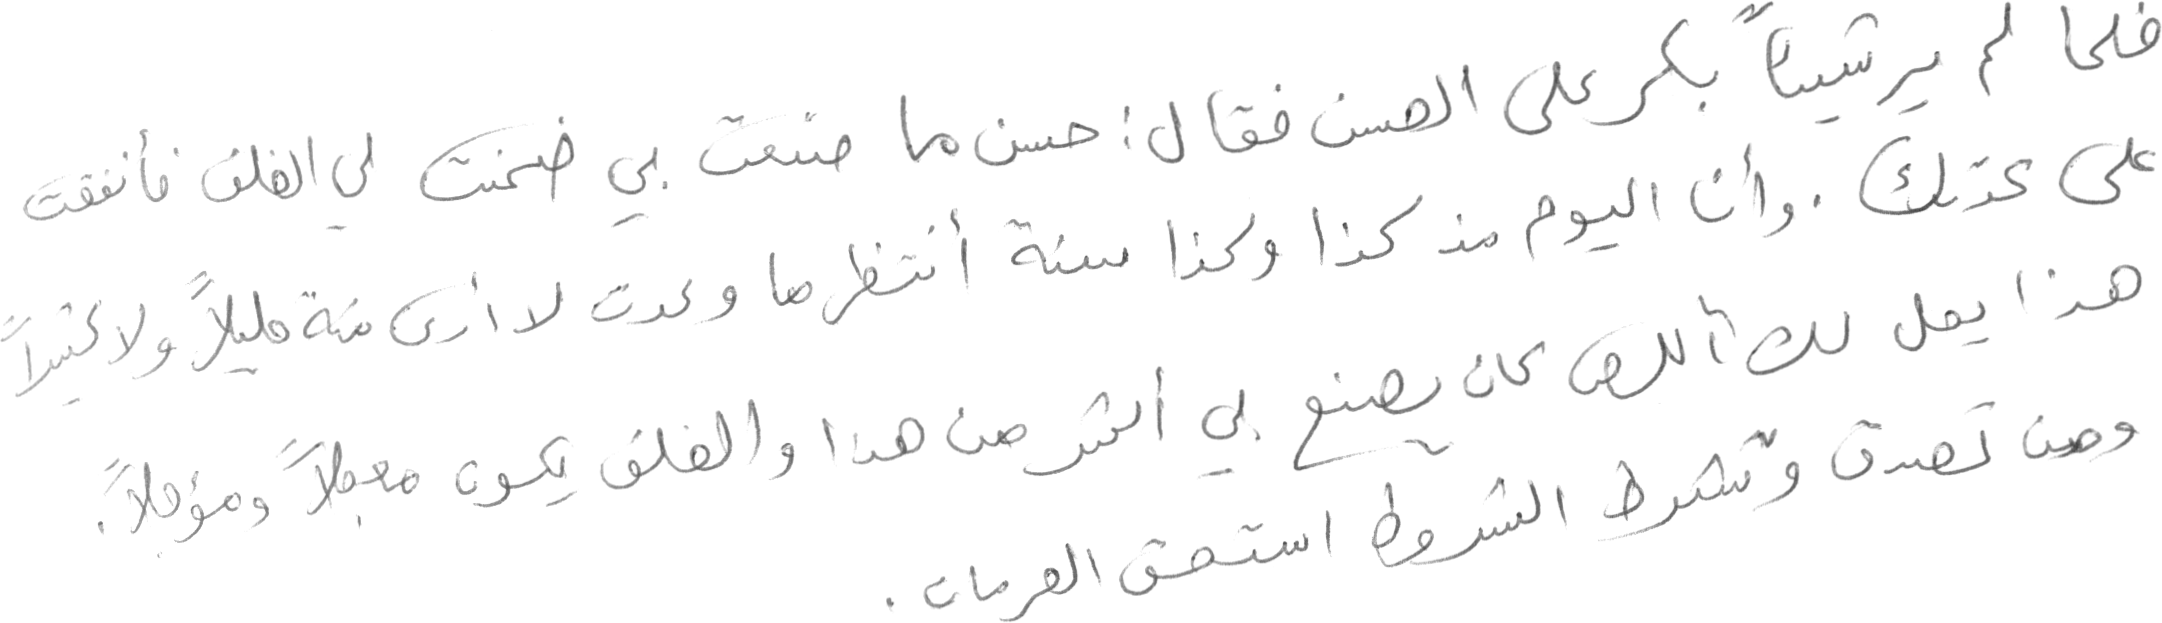 فلما لم ير شيئاً بكر على الحسن فقال: حسن ما صنعت بي ضمنت لي الخلف فأنفقت
على عدتك. وأنا اليوم مذ كذا وكذا سنة أنتظر ما وعدت لا أرى منه قليلاً ولا كثيراً
هذا يحل لك أاللص كان يصنع بي أكثر من هذا والخلف يكون معجلاً ومؤجلاً.
ومن تصدق وتشرط الشروط استحق الحرمان.